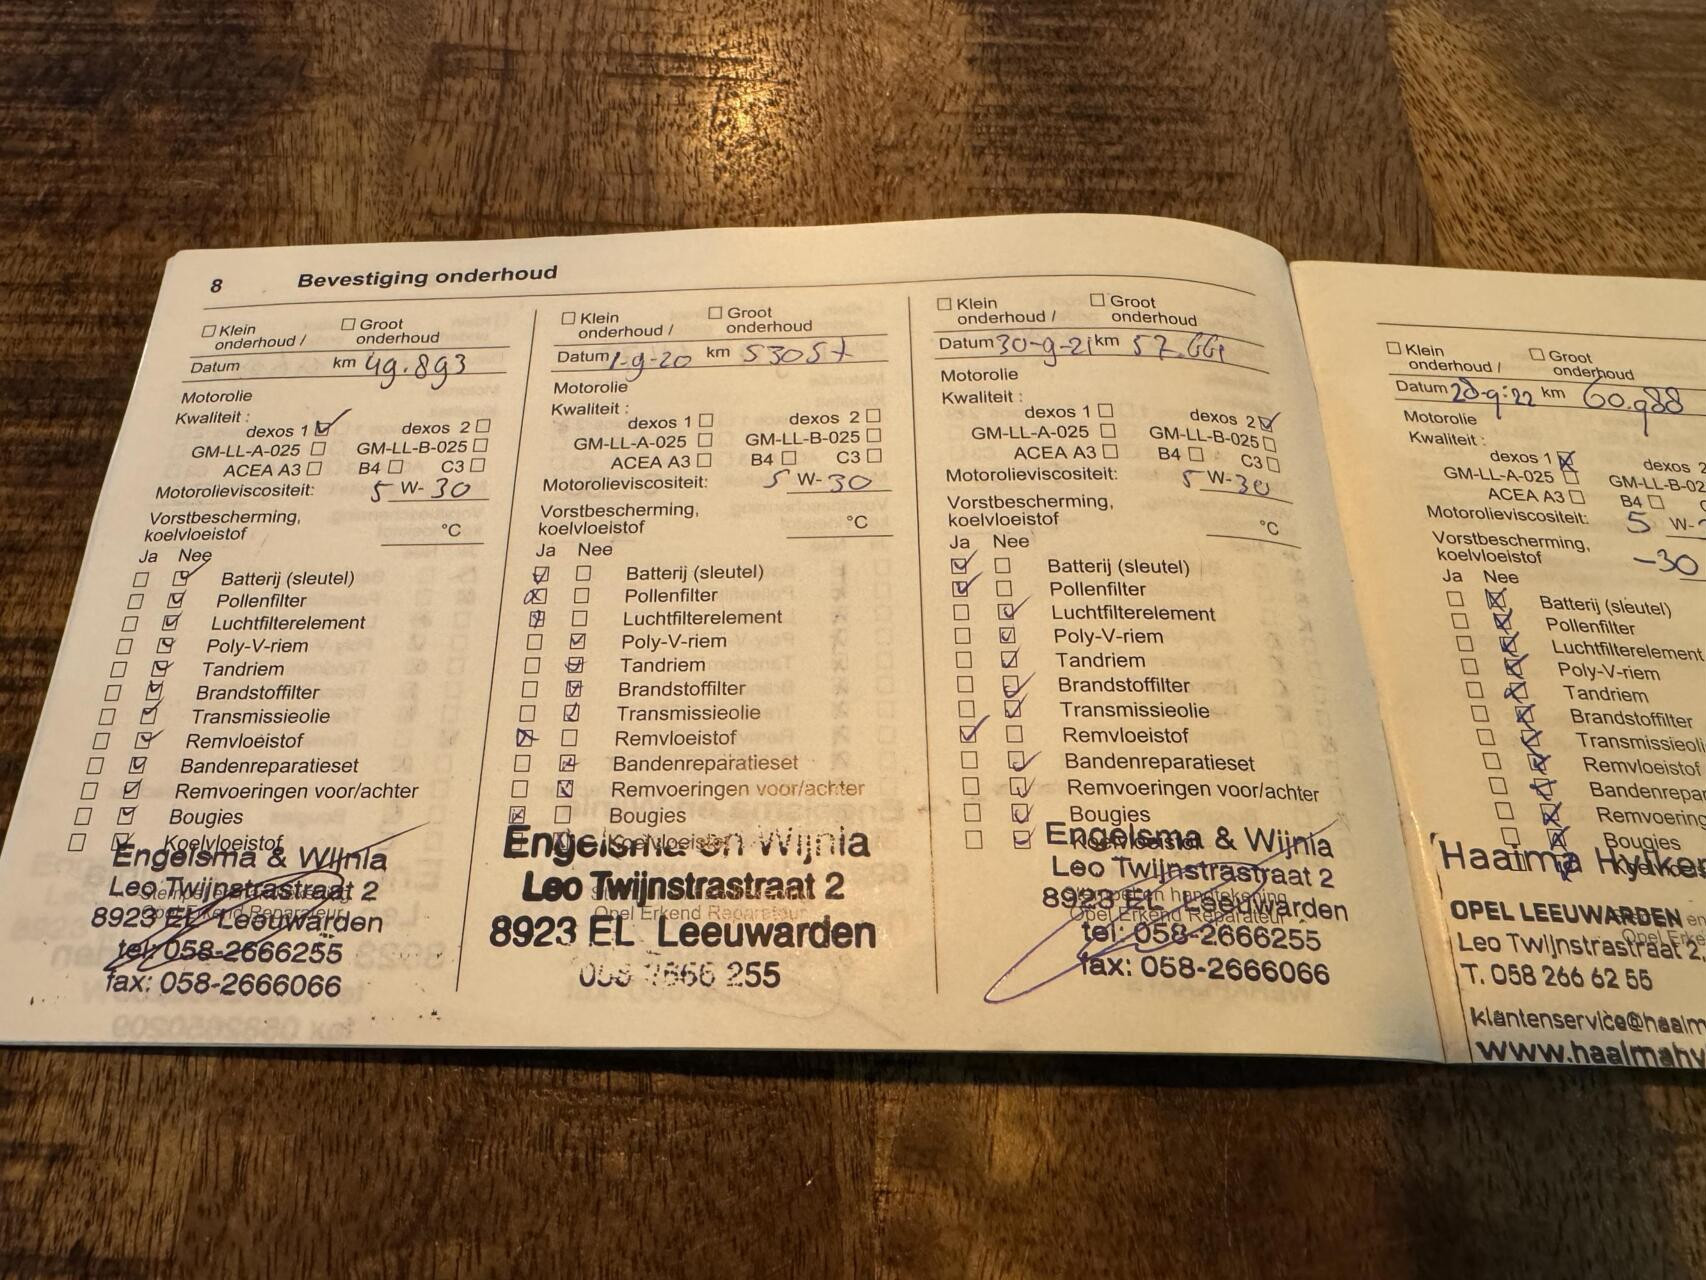 8 Bevestiging onderhoud
Klein onderhoud /
Groot onderhoud
Datum km 49.893
Motorolie
Kwaliteit :
dexos 1 dexos 2
GM-LL-A-025 GM-LL-B-025
ACEA A3 B4 C3
Motorolieviscositeit: 5 W-30
Vorstbescherming,
koelvloeistof °C
Ja Nee
Batterij (sleutel)
Pollenfilter
Luchtfilterelement
Poly-V-riem
Tandriem
Brandstoffilter
Transmissieolie
Remvloeistof
Bandenreparatieset
Remvoeringen voor/achter
Bougies
Koelvloeistof
Engelsma & Wijnia
Leo Twijnstrastraat 2
8923 EL Leeuwarden
Opel Erkend Reparateur
tel: 058-2666255
fax: 058-2666066
Klein onderhoud /
Groot onderhoud
Datum 1-9-20 km 53057
Motorolie
Kwaliteit :
dexos 1 dexos 2
GM-LL-A-025 GM-LL-B-025
ACEA A3 B4 C3
Motorolieviscositeit: 5 W-30
Vorstbescherming,
koelvloeistof °C
Ja Nee
Batterij (sleutel)
Pollenfilter
Luchtfilterelement
Poly-V-riem
Tandriem
Brandstoffilter
Transmissieolie
Remvloeistof
Bandenreparatieset
Remvoeringen voor/achter
Bougies
Koelvloeistof
Engelsma en Wijnia
Leo Twijnstrastraat 2
Opel Erkend Reparateur
8923 EL Leeuwarden
058 2666 255
Klein onderhoud /
Groot onderhoud
Datum 30-9-21 km
Motorolie
Kwaliteit :
dexos 1 dexos 2
GM-LL-A-025 GM-LL-B-025
ACEA A3 B4 C3
Motorolieviscositeit: 5 W-30
Vorstbescherming,
koelvloeistof °C
Ja Nee
Batterij (sleutel)
Pollenfilter
Luchtfilterelement
Poly-V-riem
Tandriem
Brandstoffilter
Transmissieolie
Remvloeistof
Bandenreparatieset
Remvoeringen voor/achter
Bougies
Koelvloeistof
Engelsma & Wijnia
Leo Twijnstrastraat 2
Stempel en handtekening
8923 EL Leeuwarden
Opel Erkend Reparateur
tel: 058-2666255
fax: 058-2666066
Klein onderhoud /
Groot onderhoud
Datum 28-9-22 km 60.988
Motorolie
Kwaliteit :
dexos 1 dexos 2
GM-LL-A-025 GM-LL-B-02
ACEA A3 B4
Motorolieviscositeit: 5 W-
Vorstbescherming,
koelvloeistof -30
Ja Nee
Batterij (sleutel)
Pollenfilter
Luchtfilterelement
Poly-V-riem
Tandriem
Brandstoffilter
Transmissieoli
Remvloeistof
Bandenrepar
Remvoering
Bougies
Haaima Hylke
OPEL LEEUWARDEN
Leo Twijnstrastraat 2,
Opel Erke
T. 058 266 62 55
klantenservice@haaim
www.haaimahy